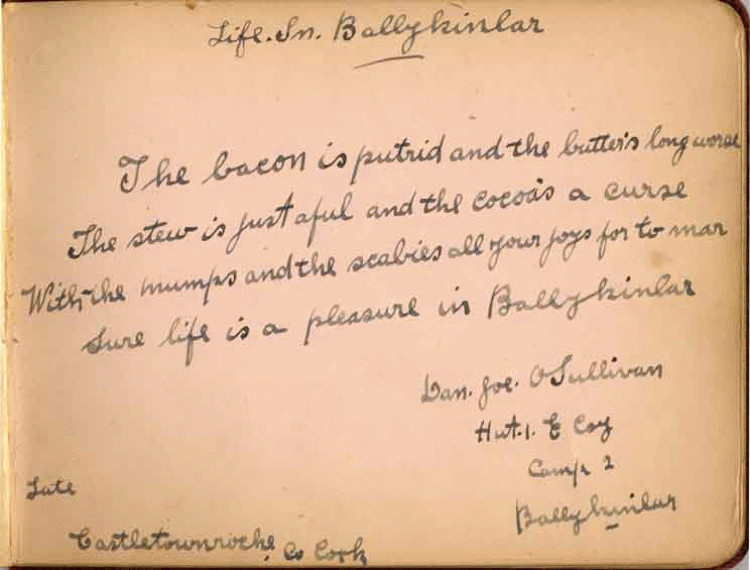 Life. In. Ballykinlar
The bacon is putrid and the butter's long worse
The stew is just aful and the cocoa's a curse
With the mumps and the scabies all your joys for to mar
Sure life is a pleasure in Ballykinlar
Dan. Joe. O'Sullivan
Hut. 1. E Coy
Camp 2
Ballykinlar
Late
Castletownroche, Co Cork